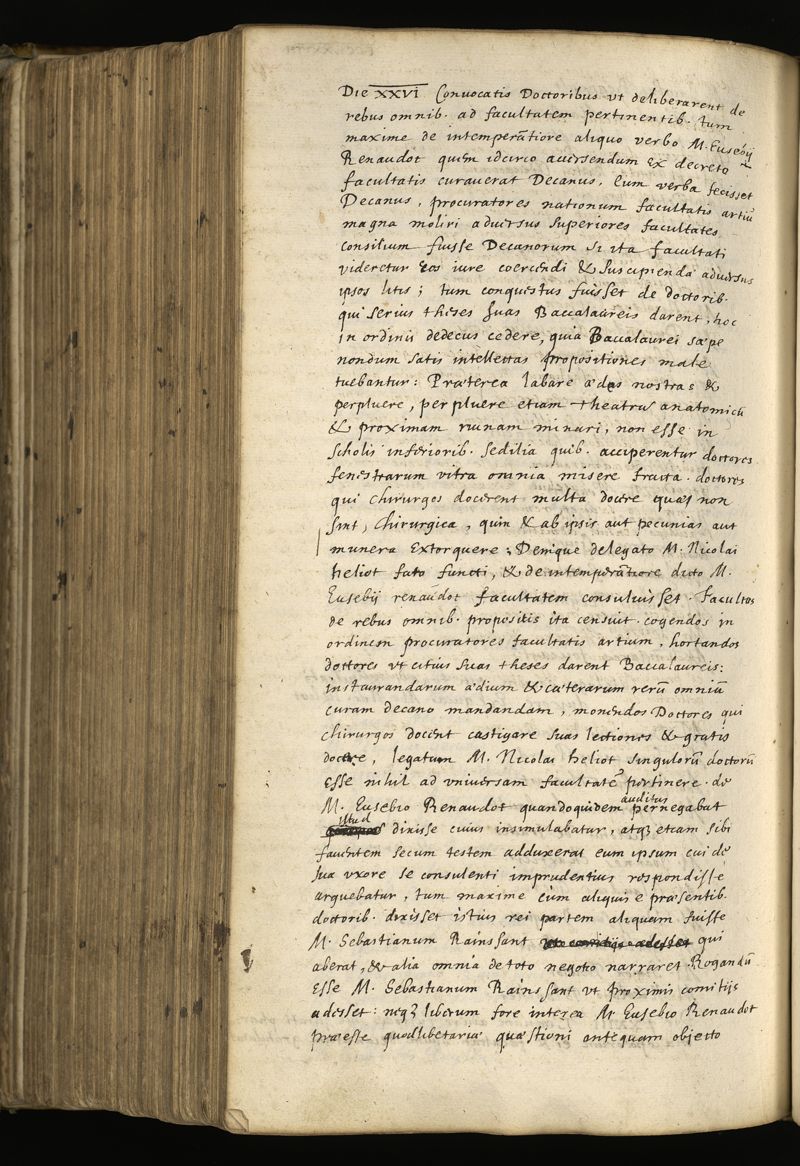 Die XXVI Convocatis Doctoribus vt deliberarent de
rebus omnib. ad facultatem pertinentib. tum
maxime de intemperãtiore aliquo verbo M. Eusebij
Renaudot quem idcirco aduersendum ex decreto
facultatis curauerat Decanus. Cum verba fecisset
Decanus, procuratores nationum facultatis artiũ
magna moliri aduersus superiores facultates
consilium fuisse Decanorum si ita facultati
videretur eos iure coercendi & suscipienda aduersus
ipsos litis; tum conquestus fuisset de doctorib.
qui serius theses suas Baccalaureis darent, hoc
in ordinis dedecus cedere, quia Baccalaurei sæpe
nondum satis intellectas propositiones male
tuebantur: Præterea labare ædes nostras &
perpluere, perpluere etiam theatrũ anatomicũ
& proximam ruinam minari, non esse in
scholis inferiorib. sedilia quib. acciperentur doctores
fenestrarum vitra omnia misere fracta. doctores
qui chirurgos docerent multa docere quæ non
sint chirurgica, quin & ab ipsis aut pecunias aut
munera extorquere; Denique de legato M. Nicolai
heliot fato functi, & de intemperãtiore dicto M.
Eusebij renaudot facultatem consuluisset. Facultas
de rebus omnib. propositis ita censuit. cogendos in
ordinem procuratores facultatis artium, hortandos
doctores vt citius suas theses darent Baccalaureis:
instaurandarum ædium & cæterarum rerũ omniũ
curam decano mandandam, monendos Doctores qui
chirurgos docent castigare suas lectiones & gratis
docere, legatum M. Nicolai heliot singulorũ doctorũ
esse nihil ad vniuersam facultatẽ pertinere. de
M. Eusebio Renaudot quandoquidem auditus pernegabat
illud dixisse cuius insimulabatur, atq3 etiam sibi
fauentem secum testem adduxerat eum ipsum cui de
sua vxore se consulenti imprudentius respondisse
arguebatur, tum maxime cùm aliquis e præsentib.
doctorib. dixisset istius rei partem aliquam fuisse
M. Sebastianum Rainssant qui
aberat, & alia omnia de toto negotio narraret. Rogandũ
esse M. Sebastianum Rainssant vt proximis comitijs
adesset: neq3 liberum fore interea M Eusebio Renaudot
præesse quodlibetariæ quæstioni antequam objecto